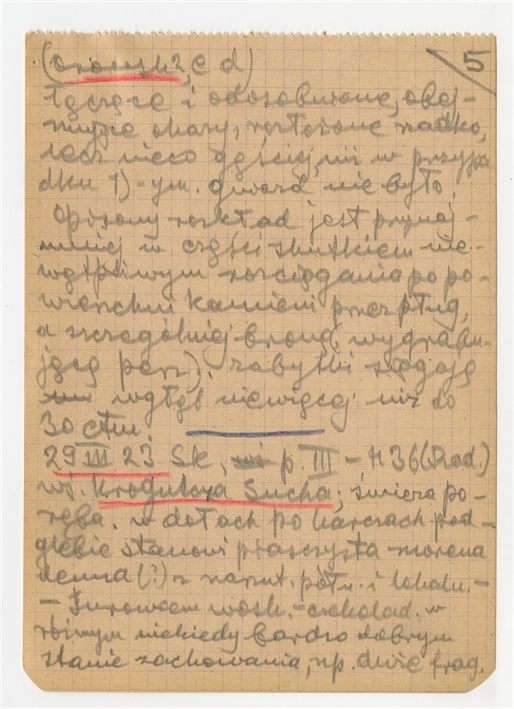 5
c d)
łączące i odosobnione, obej-
mujące obszary, rozłożone rzadko,
lecz nieco gęściej, niż w przypa
dku 1)-ym. gniazd nie było.
Opisany rozkład jest przynaj-
mniej w części skutkiem nie-
wątpliwym rozciągania po po-
wierzchni kamieni przez pług,
a szczególniej bronę (wygrabia-
jącą perz); zabytki sięgają
wgłąb niewięcej niż do
30 ctm.
29 III 23 Sk, p. III – N 36 (Rad.)
wś. Krogulcza Sucha; świeża po-
ręba. w dołach po karczach pod-
glebie stanowi piaszczysta morena
denud (!) z narzut. półn. i lokaln. –
– Surowiec woźn. - czekolad. w
różnym niekiedy bardzo dobrym
stanie zachowania, np. dwie frag.